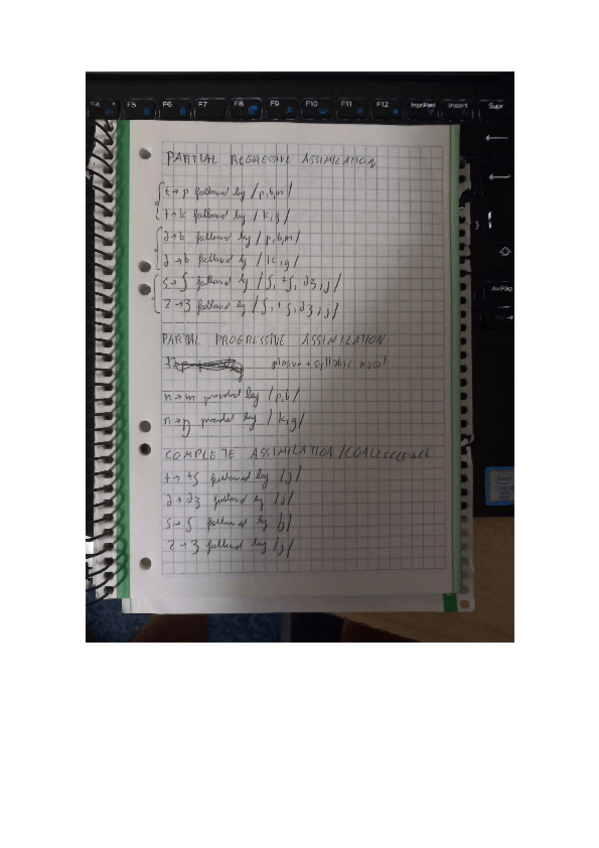 F4 F5 F6 F7 F8 F9 F10 F11 F12 ImpPant Insert Supr
PARTIAL REGRESSIVE ASSIMILATION
t→p followed by /p,b,m/
t→k followed by /k,g/
d→b followed by /p,b,m/
d→b followed by /k,g/
s→ʃ followed by /ʃ, tʃ, dʒ, j/
z→ʒ followed by /ʃ, tʃ, dʒ, j/
AvPág
PARTIAL PROGRESSIVE ASSIMILATION
plosive + syllabic nasal
n→m preceded by /p,b/
n→ŋ preceded by /k,g/
COMPLETE ASSIMILATION/COALESCENCE
t→tʃ followed by /j/
d→dʒ followed by /j/
s→ʃ followed by /j/
z→ʒ followed by /j/